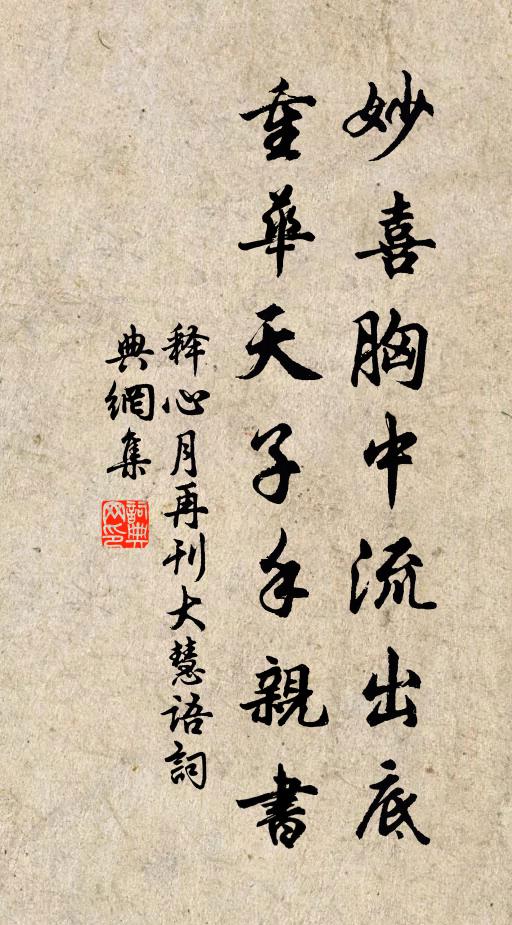 妙喜胸中流出底
重華天子手親書
释心月再刊大慧语詞
典網集
詞典網印